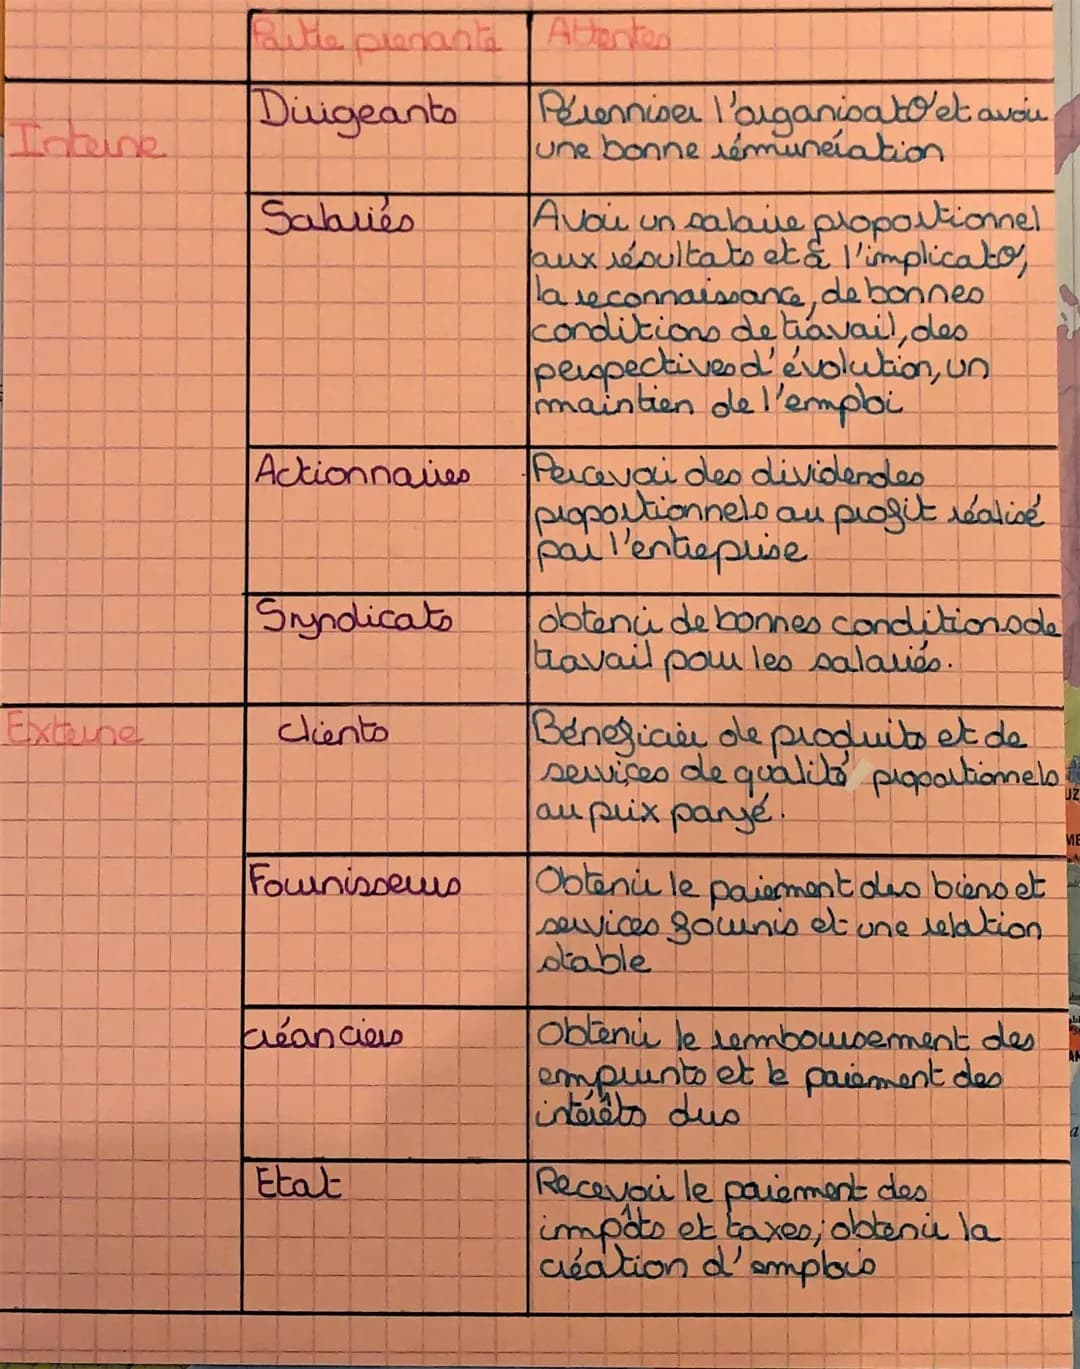 Partie prenante Attentes
Interne
Dirigeants
Pérenniser l'organisat° et avoir
une bonne rémmunération
Salariés
Avoir un salaire proportionnel
aux résultats et à l'implicat°,
la reconnaissance, de bonnes
conditions de travail, des
perspectives d'évolution, un
maintien de l'emploi
Actionnaires
Percevoir des dividendes
proportionnels au profit réalisé
par l'entreprise
Syndicats
obtenir de bonnes conditions de
travail pour les salariés.
Externe
clients
Bénéficier de produits et de
services de qualité proportionnels
au prix payé.
Fournisseurs
Obtenir le paiement des biens et
services fournis et une relation
stable
créanciers
Obtenir le remboursement des
emprunts et le paiement des
intérêts dus
Etat
Recevoir le paiement des
impôts et taxes; obtenir la
création d'emplois